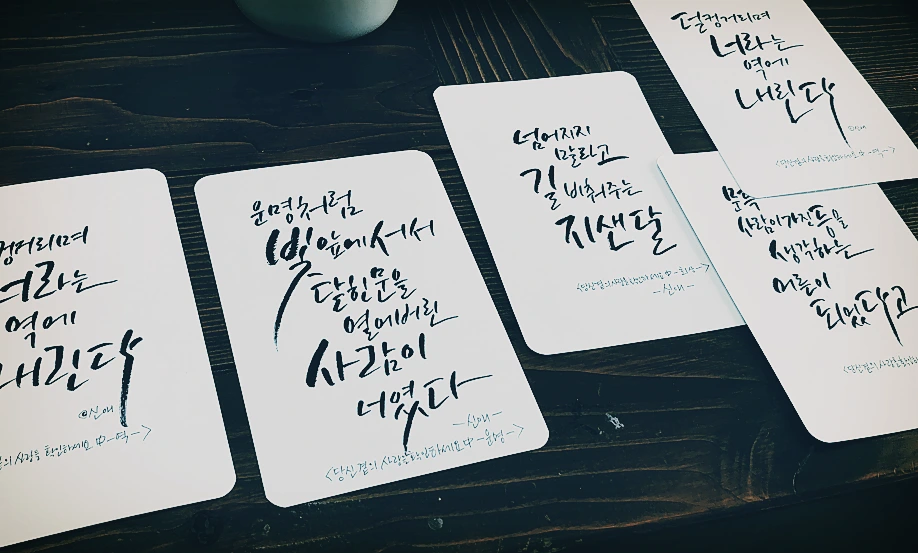 컹거리며
너라는
역에
내린다
@신애
의 사랑을 확인하세요 中 -역->
운명처럼
빛 앞에 서서
닫힌 문을
열어버린
사람이
너였다
-신애-
<당신 곁의 사랑을 확인하세요 中 -운명->
넘어지지
말라고
길 비춰주는
지샌달
<당신 곁의 사랑을 확인하세요 中
-신애-
덜컹거리며
너라는
역에
내린다
@신애
<당신 곁의 사랑을 확인하세요 中 -역->
문득
사람이 가진 등을
생각하는
어른이
되었다고
<당신 곁의 사랑을 확인